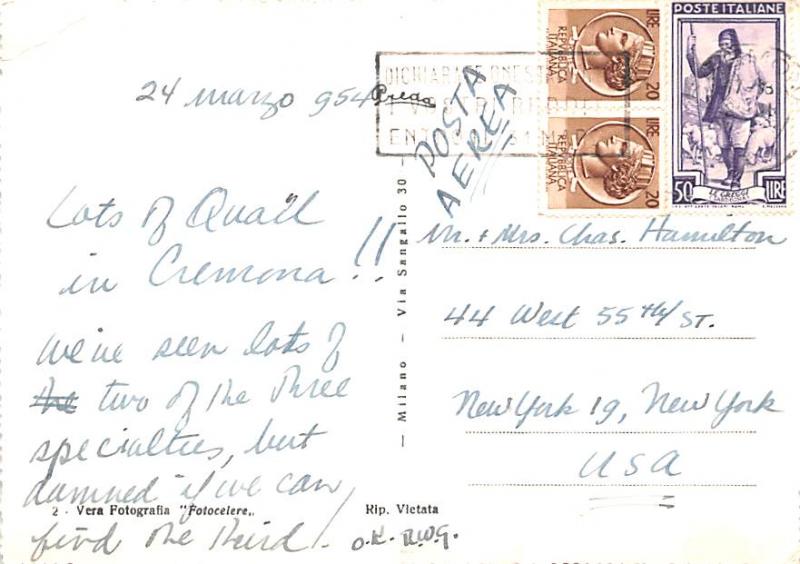 24 marzo 954
Lots of Quail
in Cremona!!
We've seen lots of
the two of the three
specialties, but
damned if we can
find the third.
O.K. R.W.G.
2 - Vera Fotografia "Fotocelere„
Rip. Vietata
— Milano - Via Sangallo 30 -
POSTA
AEREA
Mr. + Mrs. Chas. Hamilton
44 West 55th/ ST.
New York 19, New York
USA
POSTE ITALIANE
50 LIRE
LIRE 20
REPVBBLICA
ITALIANA
LIRE 20
REPVBBLICA
ITALIANA
DICHIARATE